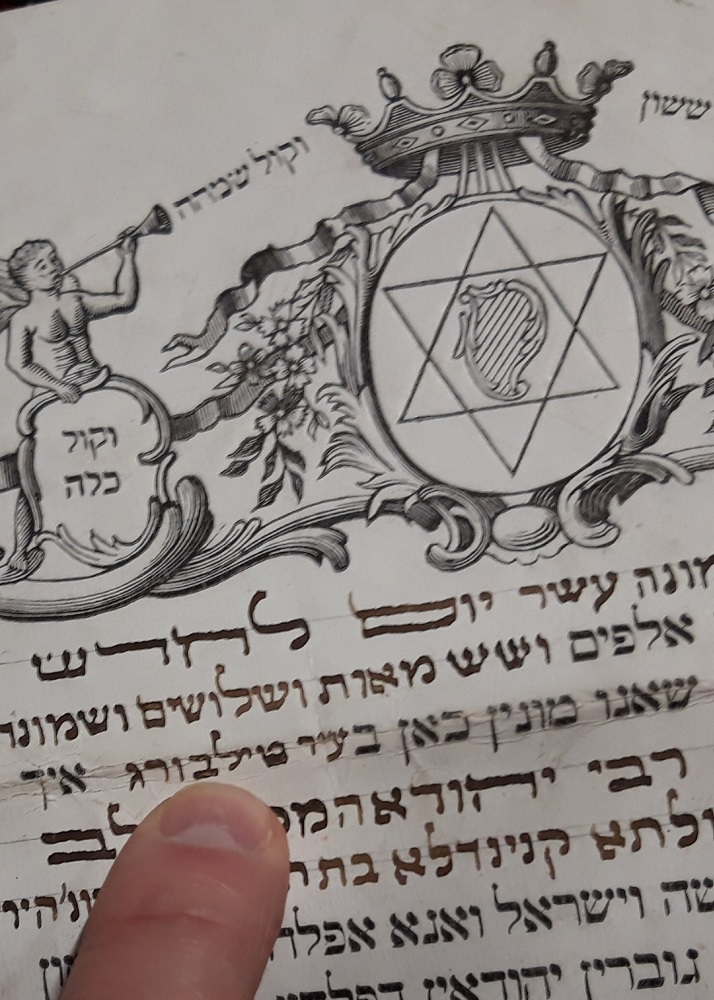 ששון
וקול שמחה
וקול
כלה
מונה עשר יום לחדש
אלפים ושש מאות ושלושים ושמונה
שאנו מונין כאן בעיר טילבורג איך
רבי יהודא המכ
ולתא קנינדלא בת
שה וישראל ואנא אפלח
גוברין יהודאין דפלחין